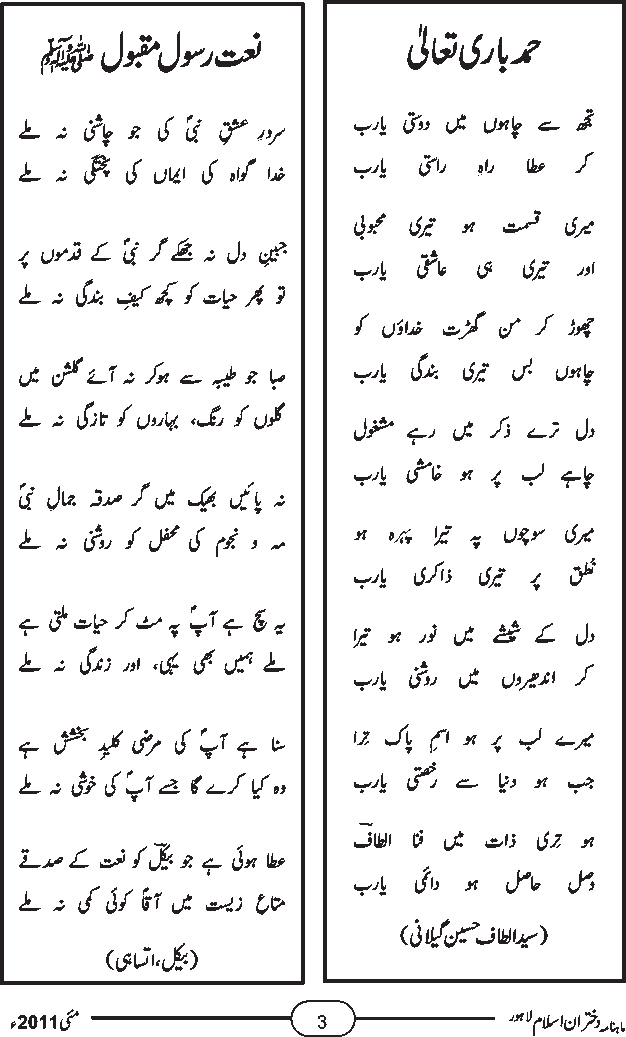 حمد باری تعالیٰ
تجھ سے چاہوں میں دوستی یارب
کر عطا راہِ راستی یارب
میری قسمت ہو تیری محبوبی
اور تیری ہی عاشقی یارب
چھوڑ کر من گھڑت خداؤں کو
چاہوں بس تیری بندگی یارب
دل ترے ذکر میں رہے مشغول
چاہے لب پر ہو خامشی یارب
میری سوچوں پہ تیرا پہرہ ہو
نُطق پر تیری ذاکری یارب
دل کے شیشے میں نور ہو تیرا
کر اندھیروں میں روشنی یارب
میرے لب پر ہو اسمِ پاک تِرا
جب ہو دنیا سے رخصتی یارب
ہو تِری ذات میں فنا الطافؔ
وصل حاصل ہو دائمی یارب
(سید الطاف حسین گیلانی)
نعت رسول مقبول ﷺ
سرورِ عشقِ نبیؐ کی جو چاشنی نہ ملے
خدا گواہ کی ایماں کی پختگی نہ ملے
جبینِ دل نہ جھکے گر نبیؐ کے قدموں پر
تو پھر حیات کو کچھ کیفِ بندگی نہ ملے
صبا جو طیبہ سے ہوکر نہ آئے گلشن میں
گلوں کو رنگ، بہاروں کو تازگی نہ ملے
نہ پائیں بھیک میں گر صدقہ جمالِ نبیؐ
مہ و نجوم کی محفل کو روشنی نہ ملے
یہ سچ ہے آپؐ پہ مٹ کر حیات ملتی ہے
ملے ہمیں بھی یہی، اور زندگی نہ ملے
سنا ہے آپؐ کی مرضی کلیدِ بخشش ہے
وہ کیا کرے گا جسے آپؐ کی خوشی نہ ملے
عطا ہوئی ہے جو بیکلؔ کو نعت کے صدقے
متاعِ زیست میں آقاؐ کوئی کمی نہ ملے
(بیکل، اتساہی)
ماہنامہ دختران اسلام لاہور
3
مئی 2011ء